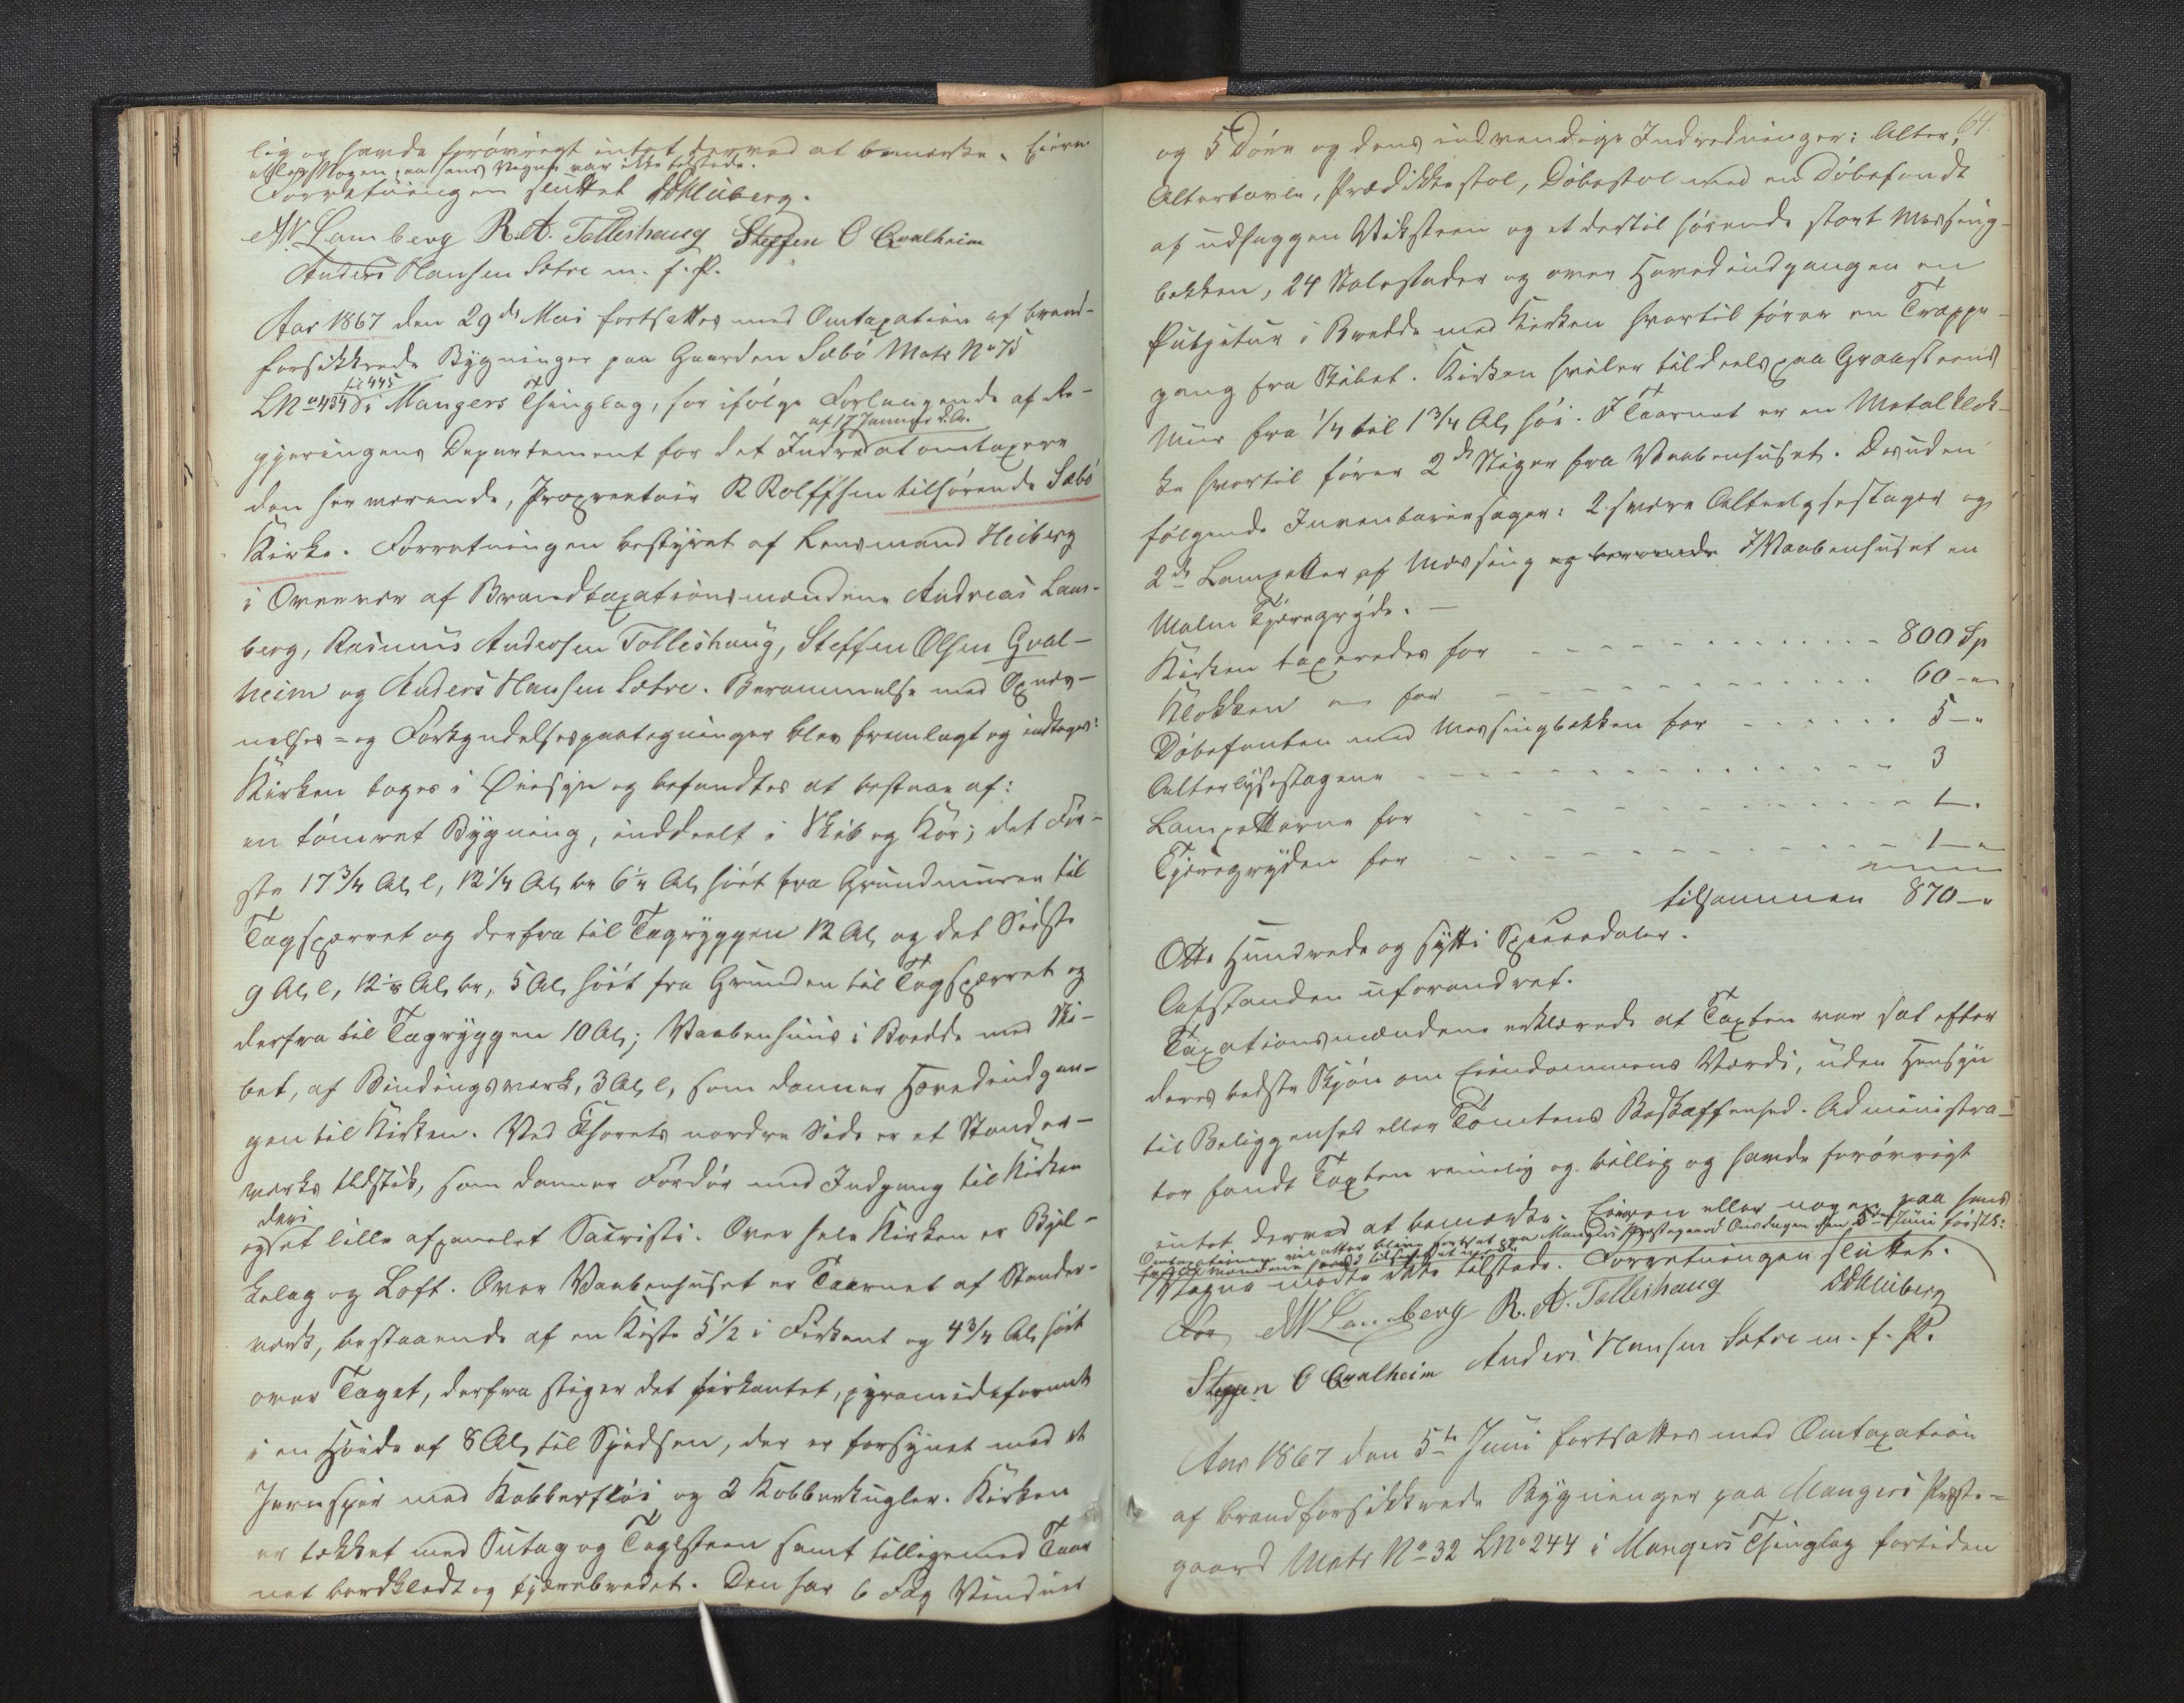 lig og havde forøvrigt intet derved at bemærke. Eieren
eller Nogen paa hans Vegne var ikke tilstede.
Forretningen sluttet DDHeiberg.
AW Lamberg R.A. Tolleshaug Steffen O Qvalheim
Anders Hansen Sætre m. f. P.
Aar 1867 den 29de Mai fortsattes med Omtaxation af brand-
forsikkrede Bygninger paa Gaarden Sæbø Matr No 75
LNo 434 til 445 i Mangers Thinglag, for ifølge Forlangende af Re-
gjeringens Departement for det Indre af 17 Januar d. A. at omtaxere
den her værende, Proprietair R Rolfsen tilhørende Sæbø
Kirke. Forretningen bestyret af Lensmand Heiberg
i Overvær af Brandtaxationsmændene Andreas Lam-
berg, Rasmus Andersen Tolleshaug, Steffen Olsen Qval-
heim og Anders Hansen Sætre. Berammelse med Opnæv-
nelses- og Forkyndelsespaategninger blev fremlagt og indtages:
Kirken toges i Øiesyn og befandtes at bestaae af:
en tømret Bygning, inddeelt i Skib og Kor; det Før-
ste 17 3/4 Al, l, 12 1/4 Al, br 6 1/4 Al, høit fra Grundmuren til
Tagsperret og derfra til Tagryggen 12 Al, og det Sidste
9 Al, l, 12 1/8 Al, br, 5 Al, høit fra Grunden til Tagsperret og
derfra til Tagryggen 10 Al,; Vaabenhuus i Bredde med Ski-
bet, af Bindingsverk, 3 Al, l, som danner Hovedindgan-
gen til Kirken. Ved Chorets nordre Side er et Stander-
verks Udstik, som danner Fordør med Indgang til Kirken
og deri et lille afpanelet Sacristi. Over hele Kirken er Bjel-
kelag og Loft. Over Vaabenhuset er Taarnet af Stander-
verk, bestaaende af en Kiste 5 1/2 i Firkant og 4 3/4 Al, høit
over Taget, derfra stiger det firkantet, pyramideformet
i en Høide af 8 Al, til Spidsen, der er forsynet med et
Jernspir med Kobberfløi og 2 Kobberkugler. Kirken
er tækket med Sutag og Taglsteen samt tilligemed Taar
net bordklædt og tjærebredet. Den har 6 Fag Vinduer
64.
og 5 Døre og dens indvendige Indredninger: Alter,
Altertavle, Prædikkestol, Døbestol med en Døbefondt
af udhuggen Vegsteen og et dertil hørende stort Messing-
bekken, 24 Stolestader og over Hovedindgangen en
Pulpitur i Bredde med Kirken hvortil fører en Trappe-
gang fra Skibet. Kirken hviler tildeels paa Graasteens
Muur fra 1/4 til 1 3/4 Al, høi. I Taarnet er en Metalklok-
ke hvortil fører 2de Stiger fra Vaabenhuset. Desuden
følgende Inventariesager: 2 svære Alterlysestager og
2de Lampetter af Messing I Vaabenhuset en
Malm Tjæregryde. —
Kirken taxeredes for - - - - - - - - - 800 Sp
Klokken — for - - - - - - - - - 60 — "
Døbefonten med Messingbekken for - - - - - - 5 — "
Alterlysestagene - - - - - - - - - 3
Lampetterne for - - - - - - - - - 1 — "
Tjæregryden for - - - - - - - - - 1 — "
tilsammen 870 — "
Otte Hundrede og sytti Speciedaler.
Afstanden uforandret.
Taxationsmændene erklærede at Taxten var sat efter
deres bedste Skjøn om Eiendommens Værdi, uden Hensyn
til Beliggenhed eller Tomtens Beskaffenhed. Administra-
tor fandt Taxten rimelig og billig og havde forøvrigt
intet derved at bemærke. Eieren eller nogen paa hans
Omtaxationen vil atter blive fortsat paa Mangers Præstegaard Onsdagen den 5te Juni førstk:
Vegne mødte ikke tilstede. Forretningen sluttet.
DDHeiberg
AW Lamberg R. A. Tolleshaug
Steffen O Qvalheim Anders Hansen Sætre m. f. P.
Aar 1867 den 5te Juni fortsattes med Omtaxation
af brandforsikkrede Bygninger paa Mangers Præste-
gaard Matr No 32 LNo 244 i Mangers Thinglag fortiden